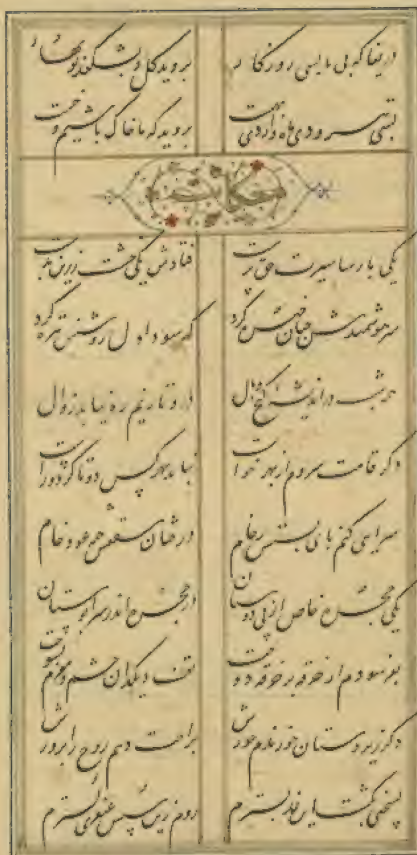 دریغا که بی ما بسی روزگار بروید گل و بشکفد نوبهار
بسی تیر و دی ماه و اردیبهشت بروید که ما خاک باشیم و خشت
حکایت
یکی پارسا سیرت حق پرست فتادش یکی خشت زرین بدست
سر هوشمندش چنان خیره کرد که سودا دل روشنش تیره کرد
هر شب در اندیشه کین گنج و مال درو تا زیم ره نیابد زوال
دگر قامت سروم از بهر خواست نباید بهر کس دوتا کرد و راست
سرای کنم پای بستش رخام درختان سقفش همه عود خام
یکی حجره خاص از پی دوستان در حجره اندر سرا بوستان
بفرسودم از خرقه بر خرقه دوخت تف دیگدان چشم و مغزم بسوخت
دگر زیردستان خورش براحت دهم روح را پرورش
بسختی بکشت این نمد بسترم روم زین سپس عبقری گسترم